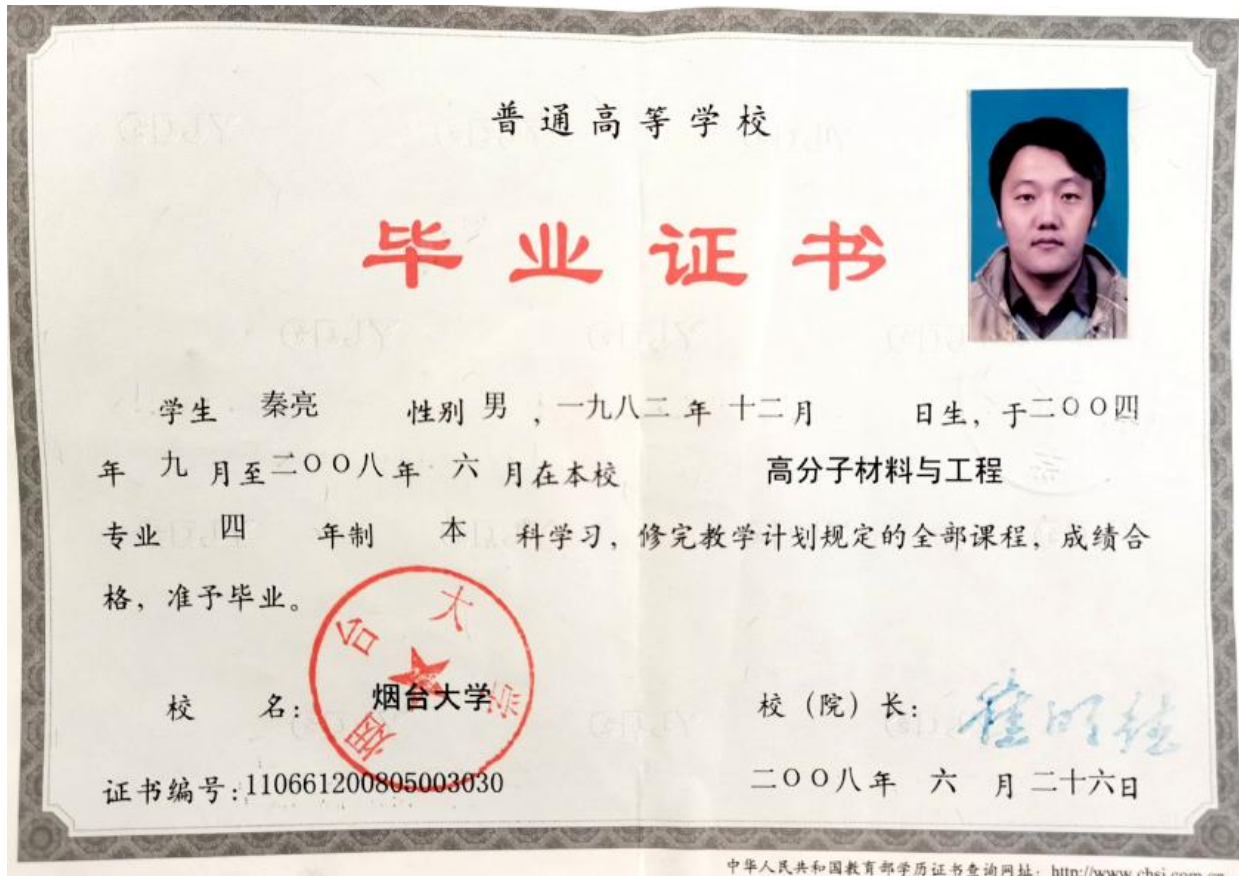 普通高等学校
毕业证书
学生 秦亮 性别 男 ，一九八二 年 十二月 日生，于二〇〇四
年 九 月至二〇〇八年 六 月在本校 高分子材料与工程
专业 四 年制 本 科学习，修完教学计划规定的全部课程，成绩合
格，准予毕业。
烟台大学
校 名：烟台大学 校（院）长：
证书编号：110661200805003030 二〇〇八年 六 月 二十六日
中华人民共和国教育部学历证书查询网址：http://www.chsi.com.cn